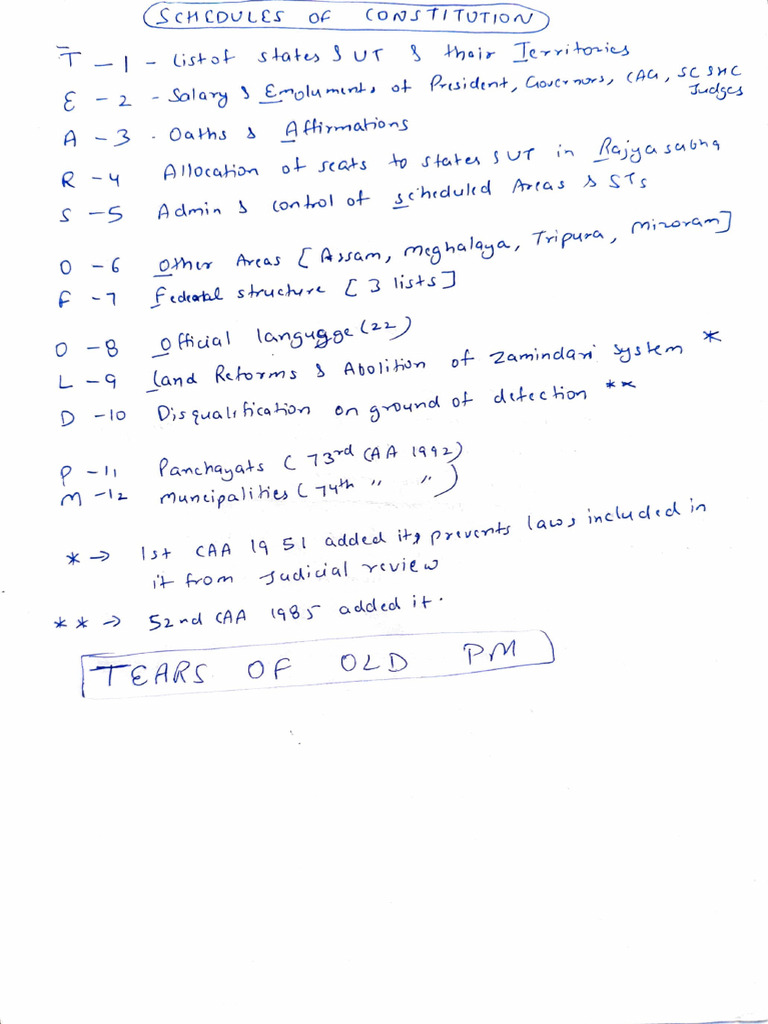 SCHEDULES OF CONSTITUTION
T - 1 - List of states & UT & their Territories
E - 2 - Salary & Emoluments of President, Governors, CAG, SC & HC Judges
A - 3 - Oaths & Affirmations
R - 4 Allocation of seats to states & UT in Rajyasabha
S - 5 Admin & control of scheduled Areas & STs
O - 6 Other Areas [Assam, Meghalaya, Tripura, Mizoram]
F - 7 Federal structure [3 lists]
O - 8 Official langugge (22)
L - 9 Land Reforms & Abolition of Zamindari system *
D - 10 Disqualification on ground of defection **
P - 11 Panchayats (73rd CAA 1992)
M - 12 Muncipalities (74th " ")
* → 1st CAA 1951 added it, prevents laws included in
it from Judicial review
** → 52nd CAA 1985 added it.
TEARS OF OLD PM